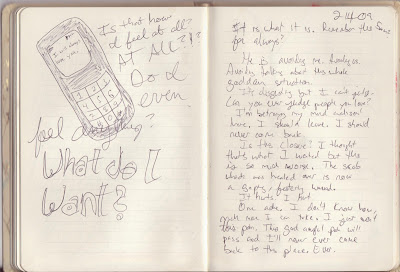 Is that how
I feel at all?
AT ALL?!?
Do I
even
feel anything?
What do I
Want?
2-14-09
It is what it is. Remember the Same
for always?
He is avoiding me. Avoiding us.
Avoiding talking about this whole
goddamn situation.
It's disgusting but I can't judge.
Can you ever judge people you love?
I'm betraying my mind
here. I should leave. I should
never come back.
Is this closure? I thought
that's what I wanted but this
is so much worse. The scab
which was healed over is now
a gaping, festering wound.
It hurts. I hurt.
One note. I don't know how
much more I can take. I just want
this pain. This god awful pain will
pass and I'll never ever come
back to this place. Ever.